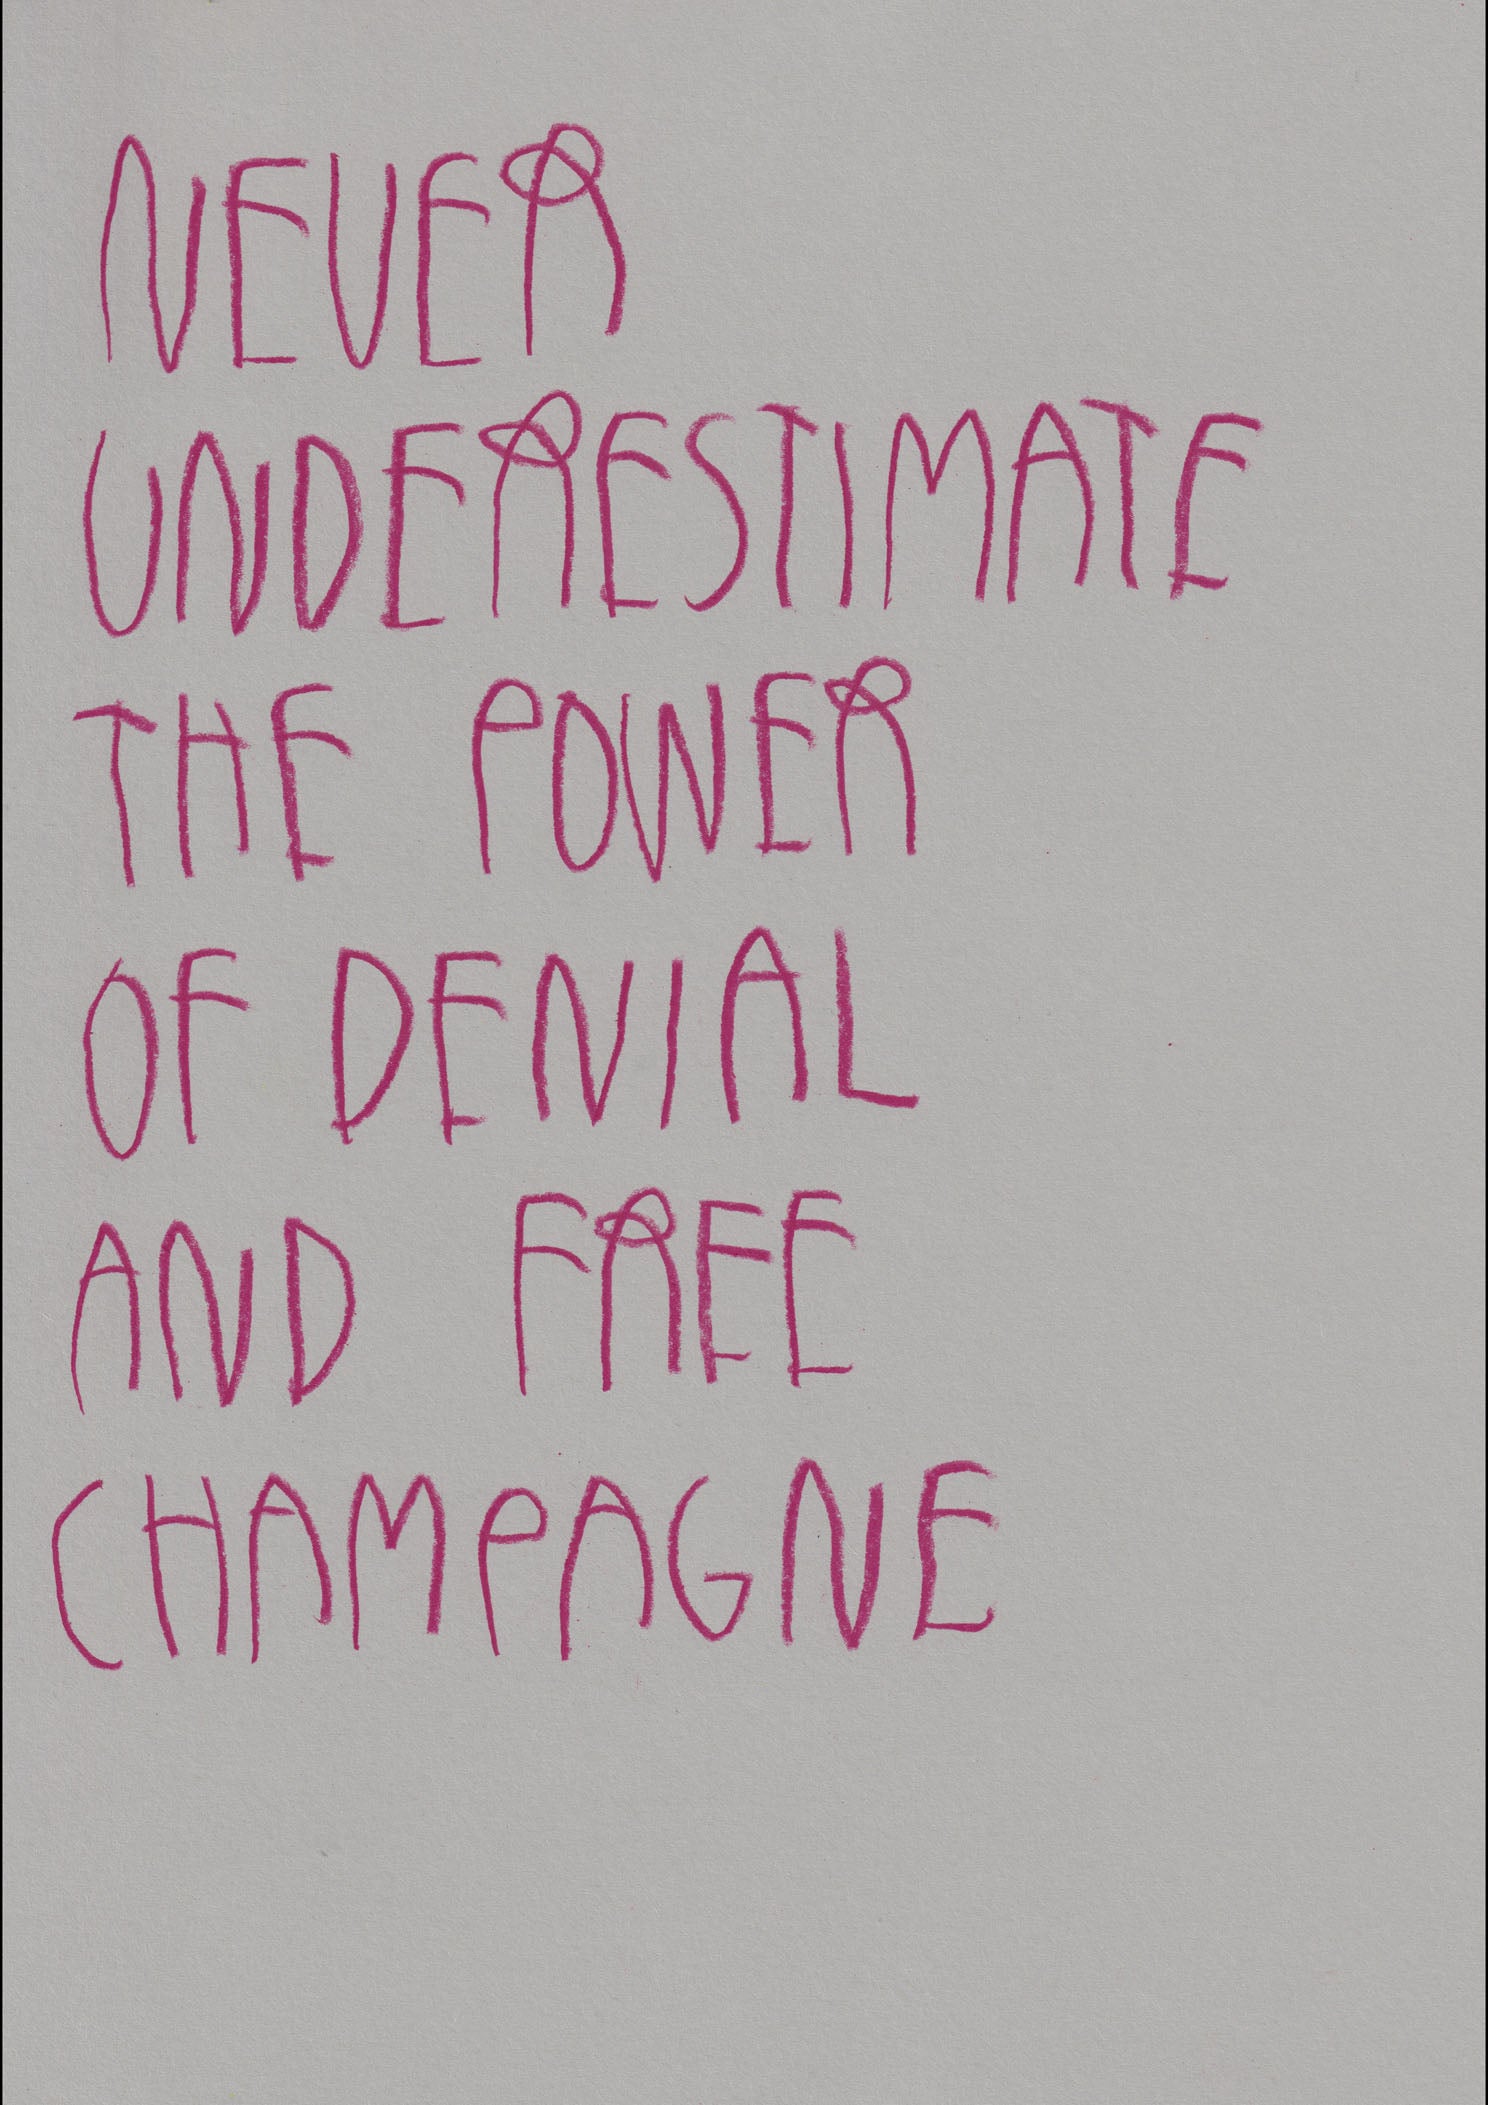 NEVER
UNDERESTIMATE
THE POWER
OF DENIAL
AND FREE
CHAMPAGNE